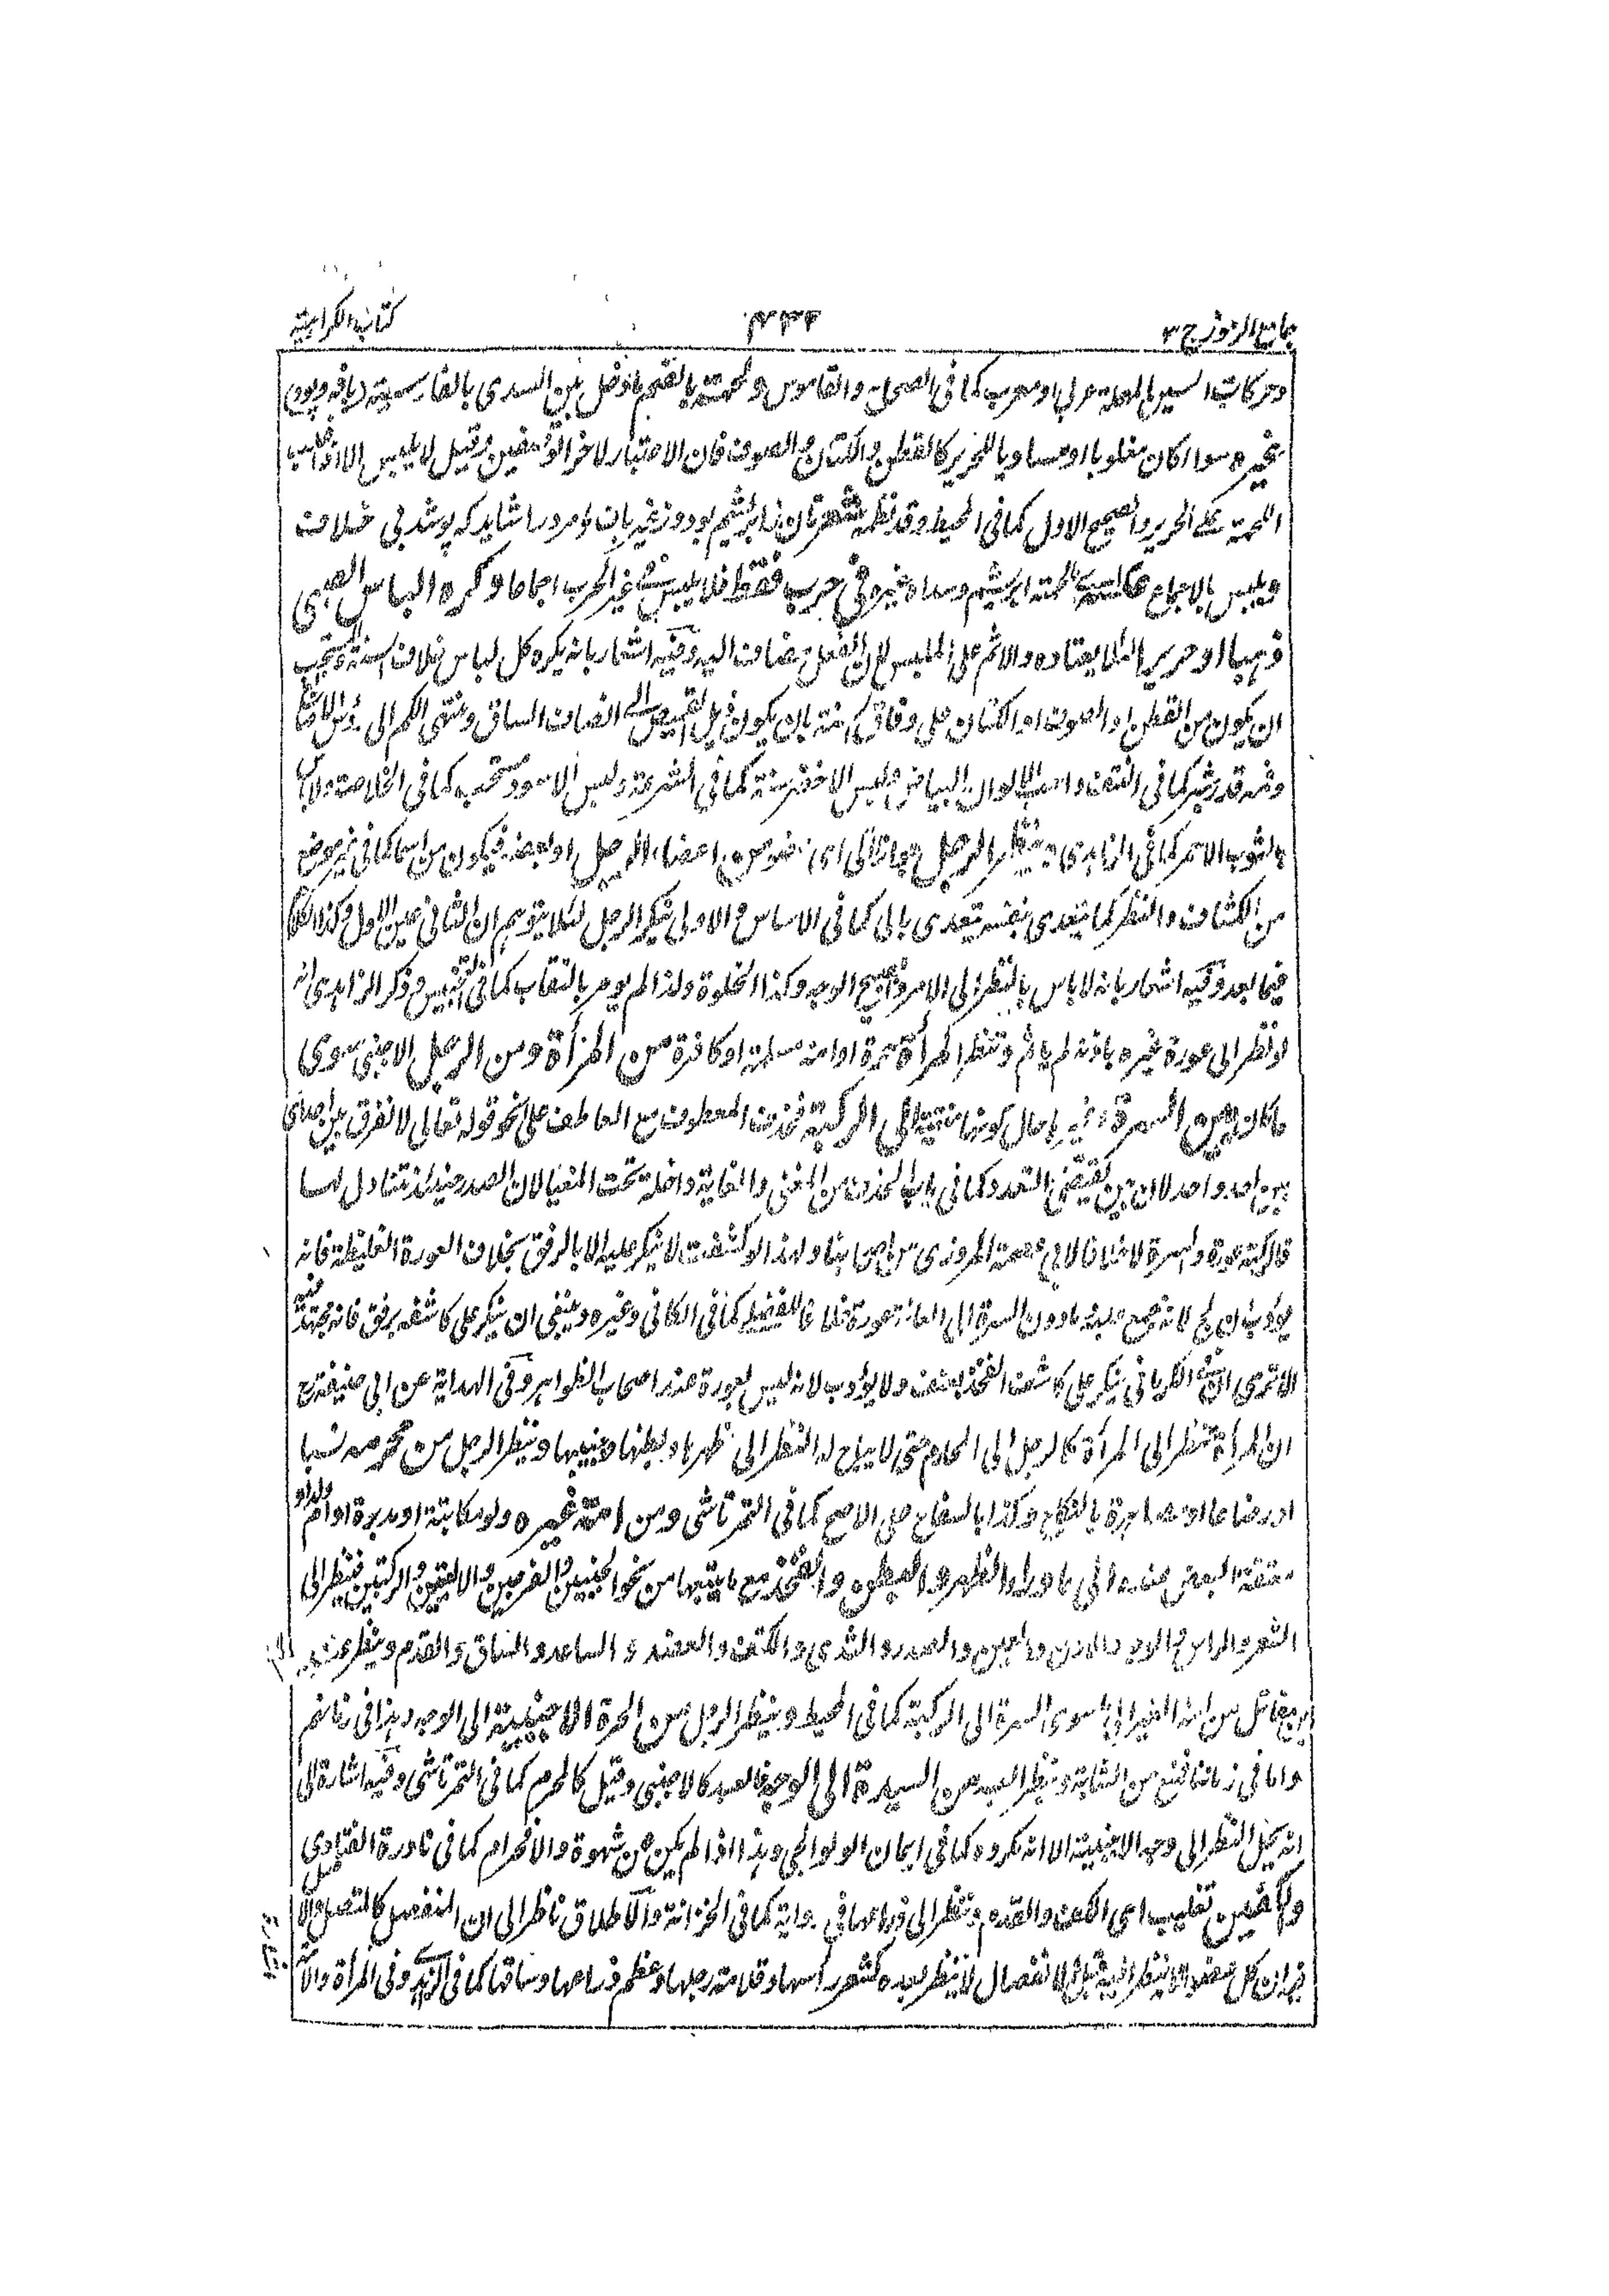 جامع الرموز ج ٣
٤٣٤
كتاب الكراهية
وحركات السين المهملة عربي او معرب كما في الصحاح والقاموس ولحمته بالضم ما دخل بين السدى بالفارسية
غيره سواء كان مغلوبا او مساويا للحرير كالقطن والكتان والصوف فان الاعتبار لاخر الوصفين وقيل لا يلبس الا اذا غلب
اللحمة على الحرير والصحيح الاول كما في المحيط وقد نظمه شعر تان ابريشم بود وزغير باف مرد را شايد كه پوشد بي خلاف
ويلبس بالاجماع عكسه لحمته ابريشم وسداه غيره في حرب فقط فلا يلبس في غير الحرب اجماعا وكره الباس الصبي
ذهبا او حريرا لئلا يعتاده والاثم على الملبس لان الفعل مضاف اليه وفيه اشعار بانه يكره كل لباس خلاف السنة ويستحب
ان يكون من القطن او الصوف او الكتان على وفاق السنة بان يكون ذيل القميص الى انصاف الساق ومنتهى الكم الى رؤس الاصابع
وفمه قدر شبر كما في النتف واحب الالوان البياض ولبس الاخضر سنة كما في الشرعة ولبس الاسود مستحب كما في الخلاصة ولا باس
بالثوب الاحمر كما في الزاهدي وينظر الرجل جوازا الى اي عضو من اعضاء الرجل او بعضه فيكون من اسما كما في غير موضع
من الكشاف والنظر كما يتعدى بنفسه يتعدى بالى كما في الاساس والاولى تنكير الرجل لئلا يتوهم ان الثاني عين الاول وكذا الكلام
فيما بعد وفيه اشعار بانه لا باس بالنظر الى الامرد الصبيح الوجه وكذا الخلوة ولذا لم يومر بالنقاب كما في التجنيس وذكر الزاهدي انه
لو نظر الى عورة غيره باذنه لم ياثم وتنظر المرأة حرة او امة مسلمة او كافرة من المرأة ومن الرجل الاجنبي سوى
ما كان بين السرة حال كونها منتهية الى الركبة فحذف المعطوف مع العاطف على نحو قوله تعالى لا نفرق بين احد اي
بين احد واحد لان بين يقتضي التعدد كما في باب الحذف من المغنى والغاية داخلة تحت المغيا لان الصدر حينئذ تتناول لها
فالركبة عورة والسرة لا خلافا لابي عصمة المروزي من اصحابنا ولهذا لو كشفت لا ينكر عليه الا بالرفق بخلاف العورة الغليظة فانه
يؤدب ان لج لانه مجمع عليه وما دون السرة الى العانة عورة خلافا للفضيل كما في الكافي وغيره وينبغي ان ينكر على كاشفه برفق فانه مجتهد فيه
الا ترى ان في الكرماني ينكر على كاشف الفخذ بعنف ولا يؤدب لانه ليس بعورة عند اصحاب الظواهر وفي الهداية عن ابي حنيفة رح
ان المرأة تنظر الى المرأة كالرجل الى المحارم حتى لا يباح له النظر الى ظهرها وبطنها وجنبيها وينظر الرجل من محرمه نسبا
او رضاعا او مصاهرة بالنكاح وكذا بالسفاح على الاصح كما في التمرتاشي ومن امة غيره ولو مكاتبة او مدبرة او ام ولد او
معتقة البعض عنده الى ما وراء الظهر والبطن والفخذ مع ما يتبعها من نحو الجنبين والفرجين والاليتين والركبتين فينظر الى
الشعر والراس والوجه والاذن والعين والصدر والثدي والكتف والعضد والساعد والساق والقدم وينظر عند
ابن مقاتل من امة الغير الى ما سوى السرة الى الركبة كما في المحيط وينظر الرجل من الحرة الاجنبية الى الوجه وهذا في زمانهم
واما في زماننا فمنع من الشابة وينظر العبد من السيدة الى الوجه فالعبد كالاجنبي وقيل كالمحرم كما في التمرتاشي وفيه اشارة الى
انه يحل النظر الى وجه الاجنبية الا انه مكروه كما في ايمان الولوالجي وهذا اذا لم يكن عن شهوة والا فحرام كما في نادرة الفتاوى
والكفين تغليب اي الكف والقدم وتنظر الى ذراعها في رواية كما في الخزانة والاطلاق ناظر الى ان المنفصل كالمتصل والاصل
فيه ان كل عضو لا ينظر اليه قبل الانفصال لا ينظر بعده كشعر راسها وقلامة رجلها وعظم ذراعها وساقها كما في الزاهدي وفي المرأة والامة